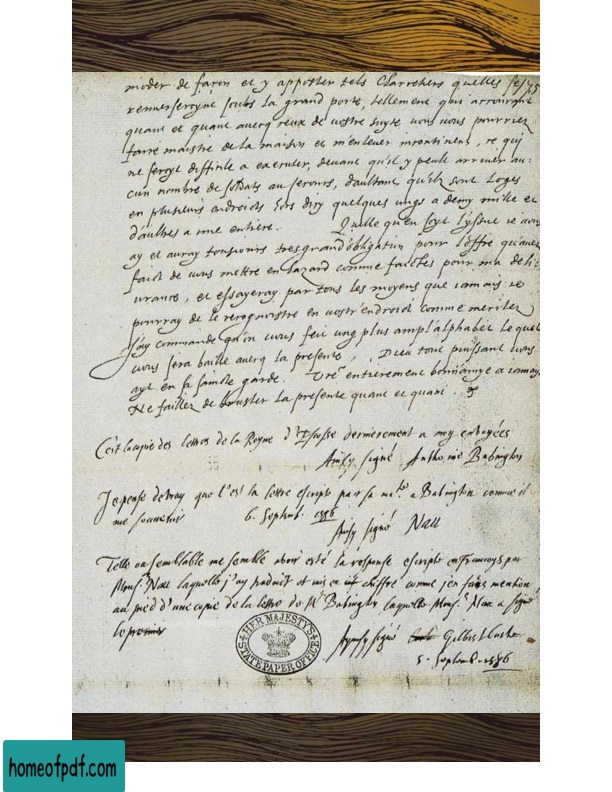 moder de façon et y apporter tels Charretiers quelles
soubs la grand porte, tellement qui accourant
quant et quant avecq ceux de vostre suyte vous vous pourriez
faire maistre de la maison et m'enlever incontinent, ce qui
ne seroyt difficile a executer, devant qu'il y peult arriver au-
cun nombre de soldats au secours, d'aultant qu'ilz sont logez
en plusieurs endroicts hors dicy quelques ungs a demy mille et
d'aultres a une entiere. Quelle qu'en soyt l'yssue je vous
ay et auray tousiours tresgrand obligation pour l'offre qu'avez
faict de vous mettre en hazard comme faictes pour ma deli-
vrance, et essayeray par tous les moyens que jamais je
pourray de le recognoistre en vostr'endroict comme meritez
J'ay commandé qu'on vous feit ung plus ampl'alphabet lequel
vous sera baillé avecq la presente, Dieu tout puissant vous
ayt en sa saincte garde. Tre entierement bonn'amye a jamays
Ne faillez de brusler la presente quant et quant.
C'est la copie des lettres de la Royne d'Escosse dernierement a moy envoyées
Ainsy signé Anthonie Babington
Je pense de vray que c'est la lettre escripte par sa ma.te a Babington comme il
me souvient 6. Septemb. 1586
Ainsy signé Nau
Telle ou semblable me semble avoir esté la response escripte en Francoys par
Mons.r Nau laquelle j'ay traduict et mis en chiffre comme j'en fais mention
au pied d'une copie de la lettre de M.r Babington laquelle Mons.r Nau a signé
le premier
Aynsy signé Gilbert Curle
5. Septemb. 1586
HER MAJESTY'S
STATE PAPER OFFICE
homeofpdf.com